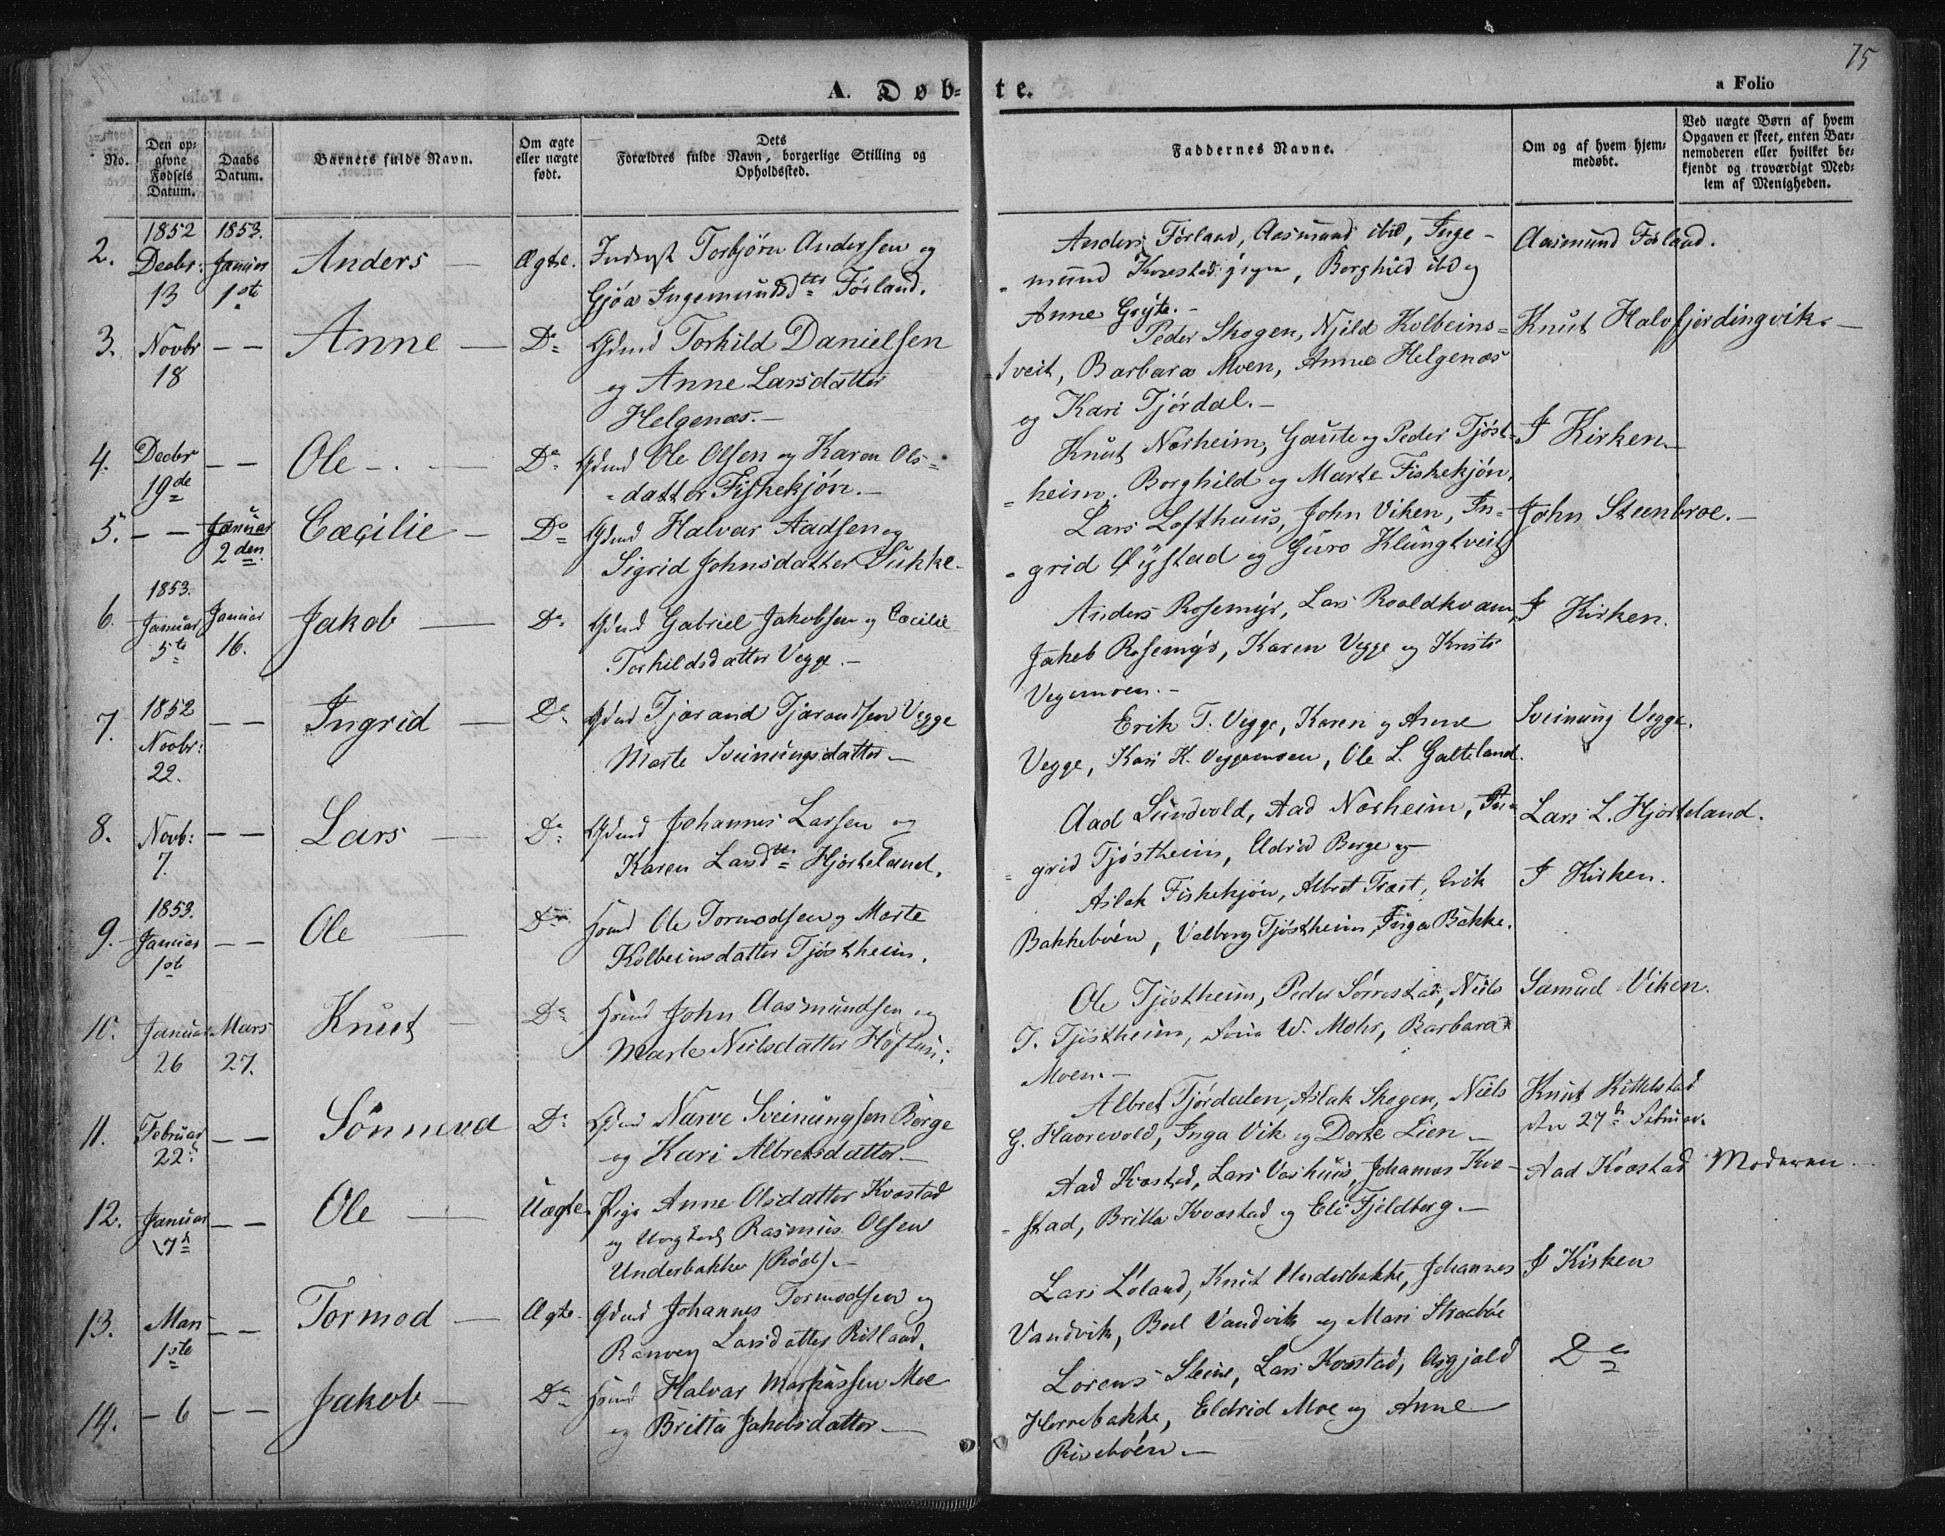 75
A. Døb- te.
a Folio
No.
Den op-
givne
Fødsels
Datum.
Daabs
Datum.
Barnets fulde Navn.
Om ægte
eller uægte
født.
Dets
Forældres fulde Navn, borgerlige Stilling og
Opholdssted.
Faddernes Navne.
Om og af hvem hjem-
medøbt.
Ved uægte Børn af hvem
Opgaven er skeet, enten Bar-
nemoderen eller hvilket be-
kjendt og troværdigt Med-
lem af Menigheden.
2.
1852
Decbr:
13
1853.
Januar
1ste
Anders
Ægte.
Torbjørn Andersen og
Gjøa Ingemundsdtr Førland.
Anders Førland, Aasmund ibid, Inge-
mund Borghild ibd og
Anne Gryte.
Aasmund Førland.
3.
Novbr
18
— —
Anne
Do
Gdmd Torkild Danielsen
og Anne Larsdatter
Helgenæs.
Peder Skogen, Njeld Kolbeins-
tveit, Barbara Moen, Anne Helgenæs
og Kari Tjørdal.
Knut Halvfjerdingvik.
4.
Decbr
19de
— —
Ole
Do
Gdmd Ole Olsen og Karen Ols-
datter Fiskekjøn.
Knut Nørheim, Gaute og Peder Tjøst-
heim, Borghild og Marte Fiskekjøn,
I Kirken
5.
— —
Januar
2den
Cæcilie
Do
Gdmd Halvar Aadsen og
Sigrid Johnsdatter Dukke.
Lars Lofthuus, John Viken, In-
grid Øystad og Guro Klungtveit
John Steenbroe.
6.
1853.
Januar
5te
Januar
16.
Jakob
Do
Gdmd Gabriel Jakobsen og Cæcilie
Torkildsdatter Vegge.
Anders Rosemyr, Lars Roaldkvam,
Jakob Rosemyr, Karen Vegge og
Vegemoen.
I Kirken.
7.
1852
Novbr:
22.
— —
Ingrid
Do
Gdmd Tjærand Tjærandsen Vegge
Marte Sveinungsdatter
Erik T. Vegge, Karen og Anne
Vegge, Kari K. Veggemoen, Ole L. Galteland.
Sveinung Vegge.
8.
Novb:
7.
— —
Lars
Do
Gdmd Johannes Larsen og
Karen Larsdtr Hjorteland.
Aad Sundvold, Aad Nørheim, In-
grid Tjøstheim, Eldrid Berge og
Lars L. Hjorteland.
9.
1853.
Januar
1st
— —
Ole
Do
Hsmd Ole Tormodsen og Marte
Kolbeinsdatter Tjøstheim.
Aslak Fiskekjøn, Albret Træet, Erik
Bakkebøen, Valborg Tjøstheim, Inga Bakke.
I Kirken.
10.
Januar
26
Mars
27.
Knut
Do
Hsmd John Aasmundsen og
Marte Nielsdatter
Ole Tjøstheim, Peder Sørrestad, Niels
T. Tjøstheim, W. Mohr, Barbara
Moen.
Samuel Viken.
11.
Februar
22
— —
Sønneva
Do
Gdmd Narve Sveinungsen Berge
og Kari Albretsdatter
Albret Tjørdalen, Aslak Skogen, Niels
G. Haarevold, Inga Vik og Dorte Lien
Knut Kittelstad
den 27de Februar.
12.
Januar
17d
— —
Ole
Uægte.
Pige Anne Olsdatter Kvæstad
og Ungkarl Rasmus Olsen
Underbakke (Røed).
Aad Kvæstad, Lars Væshuus, Johannes Kvæ-
stad, Britta Kvæstad og Eli Fjeldberg.
Aad Kvæstad
Moderen
13.
Mars
1ste
— —
Tormod
Ægte.
Gdmd Johannes Tormodsen og
Ranvey Larsdatter Ritland.
Lars Løland, Knut Underbakke, Johannes
Vandvik, Boel Vandvik og Mari Straabøe
I Kirken
14.
— 6
— —
Jakob
Do
Hsmd Halvar Markussen Moe
og Britta Jakobsdatter
Lorens Steine, Lars Kvæstad, Asgjæld
Herrebakke, Eldrid Moe og Anne
Risebøen.
Do